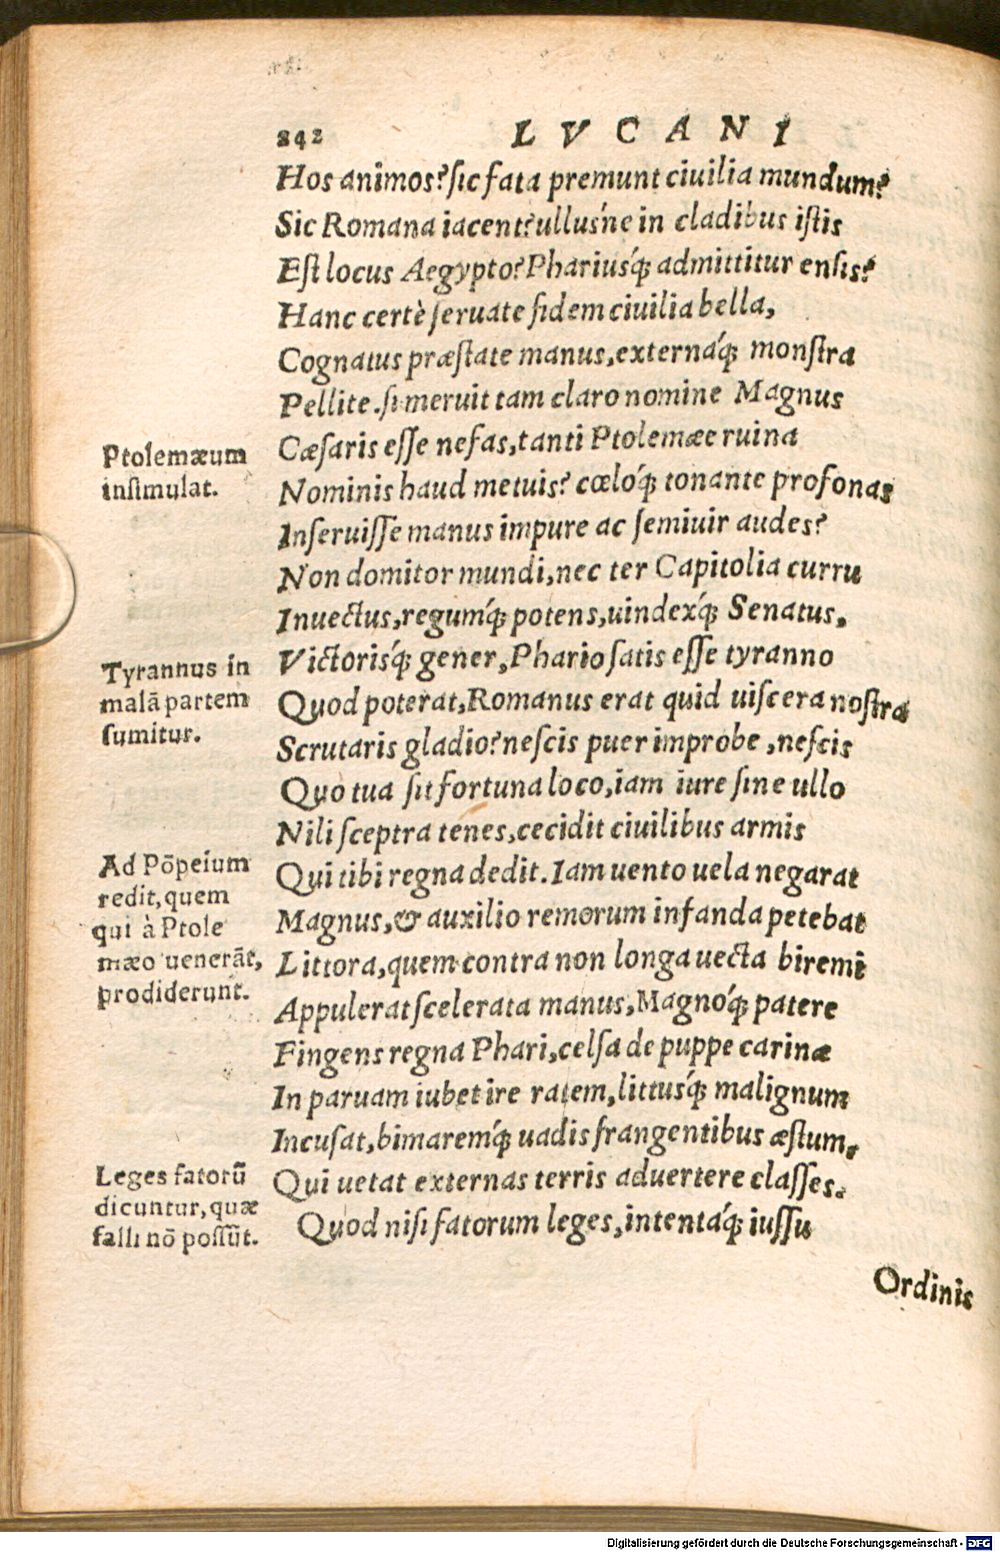 242
LVCANI
Hos animos? sic fata premunt ciuilia mundum?
Sic Romana iacent? ullus'ne in cladibus istis
Est locus Aegypto? Pharius'q́; admittitur ensis?
Hanc certè seruate fidem ciuilia bella,
Cognatus præstate manus, externaq́; monstra
Pellite. si meruit tam claro nomine Magnus
Cæsaris esse nefas, tanti Ptolemæe ruina
Nominis haud metuis? cœloq́; tonante profonas
Inseruisse manus impure ac semiuir audes?
Non domitor mundi, nec ter Capitolia curru
Inuectus, regumq́; potens, uindexq́; Senatus,
Victorisq́; gener, Phario satis esse tyranno
Quod poterat, Romanus erat quid uiscera nostra
Scrutaris gladio? nescis puer improbe, nescis
Quo tua sit fortuna loco, iam iure sine ullo
Nili sceptra tenes, cecidit ciuilibus armis
Qui tibi regna dedit. Iam uento uela negarat
Magnus, & auxilio remorum infanda petebat
Littora, quem contra non longa uecta biremi
Appulerat scelerata manus, Magnoq́; patere
Fingens regna Phari, celsa de puppe carinæ
In paruam iubet ire ratem, littusq́; malignum
Incusat, bimaremq́; uadis frangentibus æstum,
Qui uetat externas terris aduertere classes.
Quod nisi fatorum leges, intentaq́; iussu
Ordinis
Ptolemæum
insimulat.
Tyrannus in
malā partem
sumitur.
Ad Pōpeium
redit, quem
qui à Ptole
mæo uenerāt,
prodiderunt.
Leges fatorū
dicuntur, quæ
falli nō possūt.
Digitalisierung gefördert durch die Deutsche Forschungsgemeinschaft - DFG